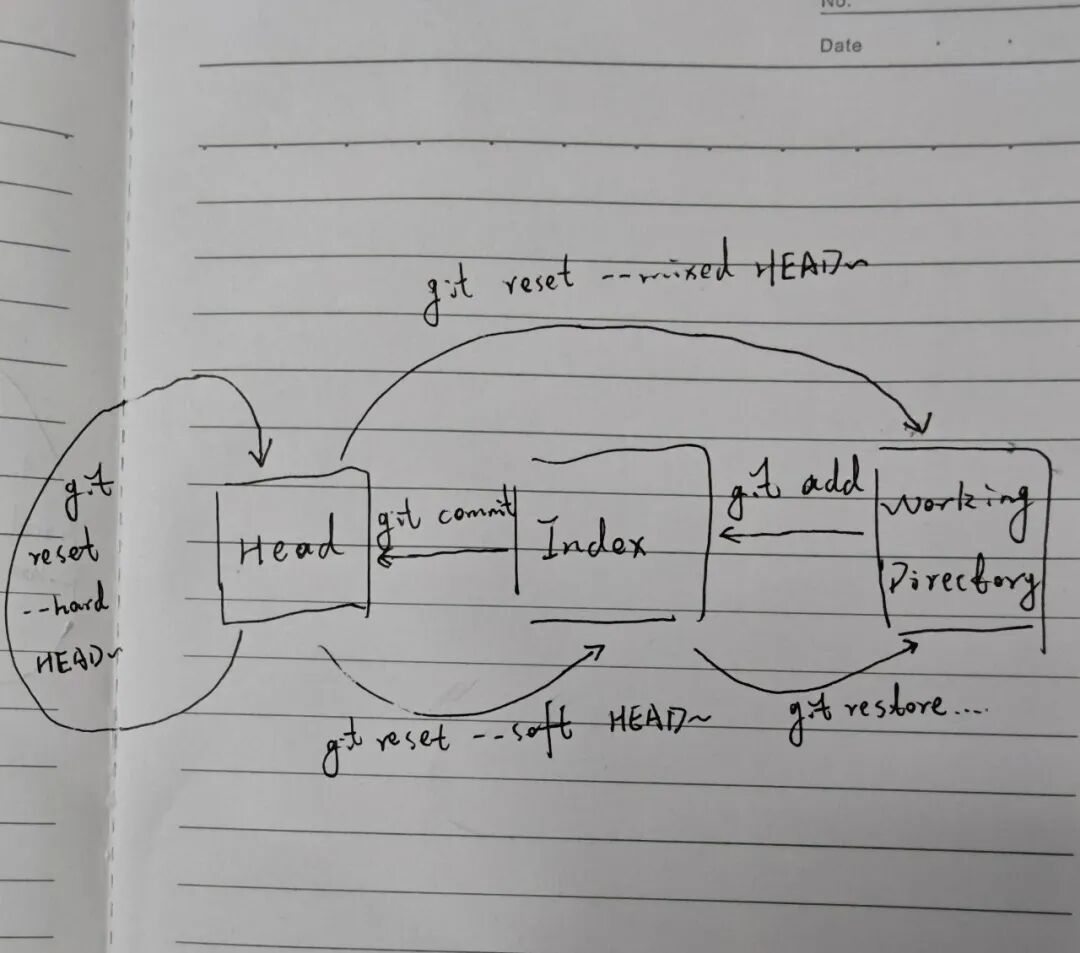 No.
Date
git reset --mixed HEAD~
git
reset
--hard
HEAD~
Head
git commit
Index
git add
Working
Directory
git reset --soft HEAD~
git restore....